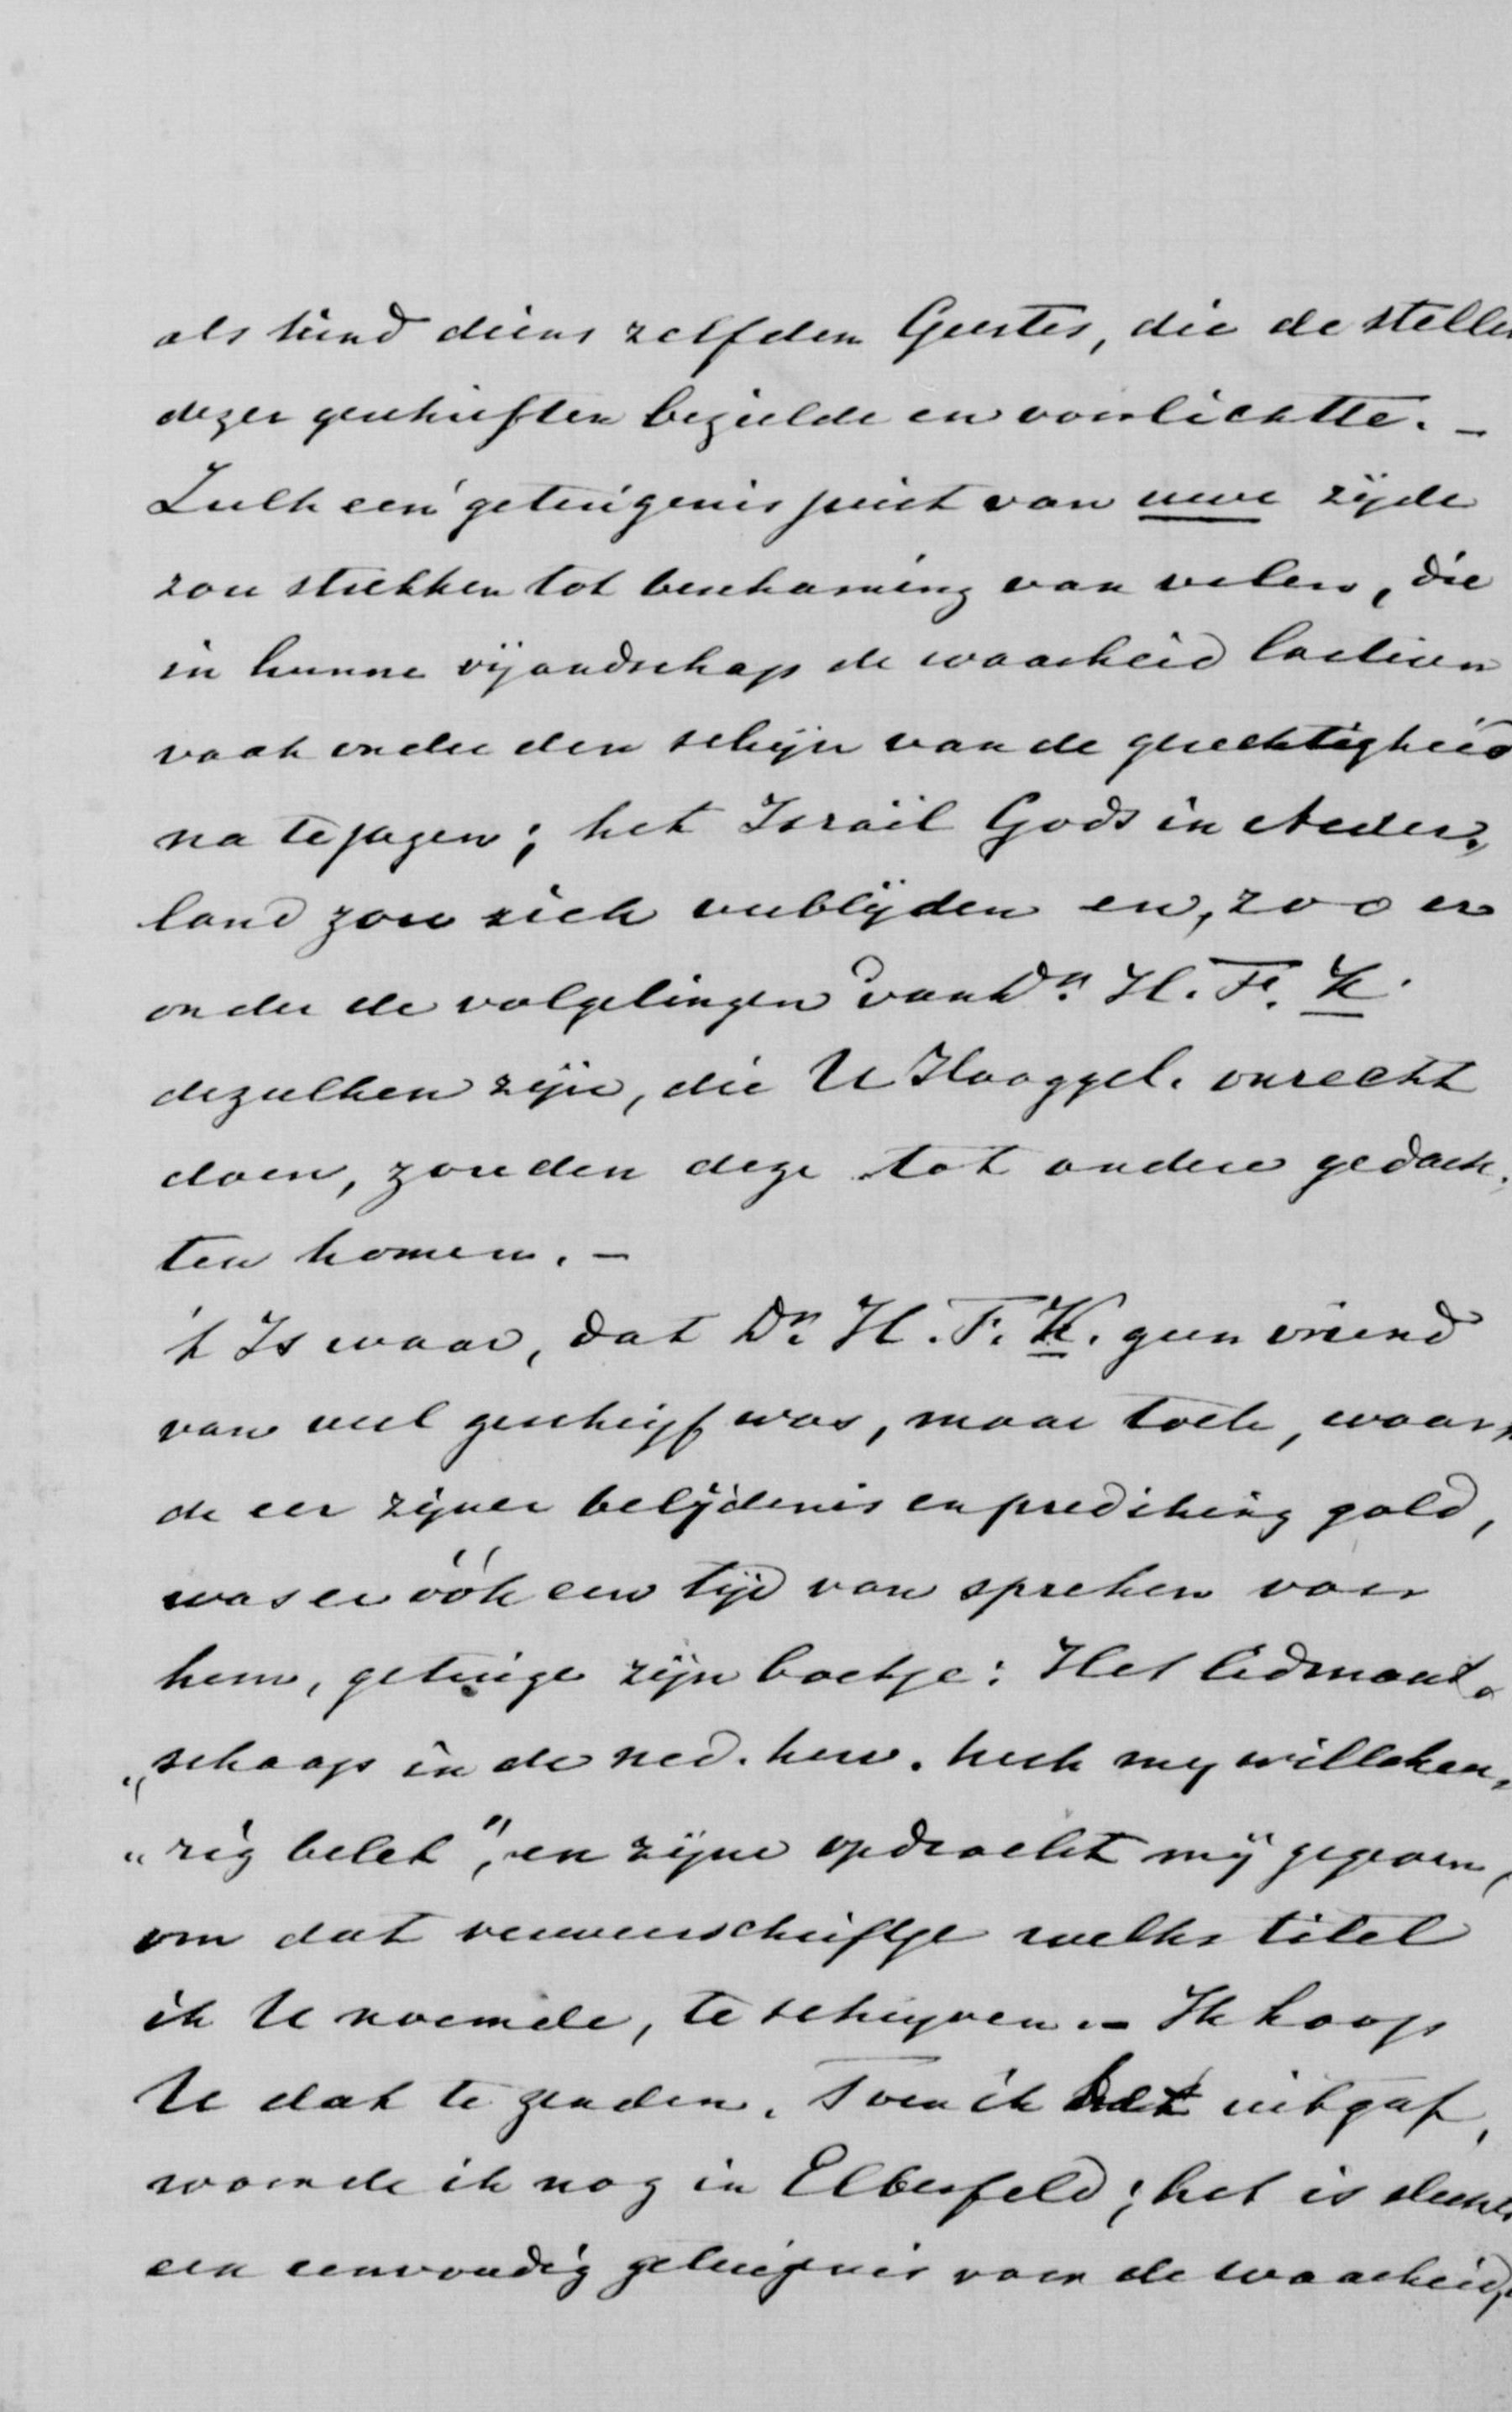 als kind diens zelfden Geestes, die de stelle
dezer geschriften bezielde en voorlichtte. –
Zulk een getuigenis juist van uwe zijde
zou strekken tot beschaming van velen, die
in hunne vijandschap de waarheid lasteren
vaak onder den schijn van de gerechtigheid
na te jagen; het Israël Gods in Neder„
land zou zich verblijden en, zoo er
onder de volgelingen van Dr. H. F. K.
dezulken zijn, die U Hooggel. onrecht
doen, zouden deze tot andere gedach„
ten komen. –
't Is waar, dat Dr. H. F. K. geen vriend
van veel geschrijf was, maar toch, waar
de eer zijner belijdenis en prediking gold,
was er óók een tijd van spreken voor
hem, getuige zijn boekje: Het lidmaat„
„schaap in de Ned. herv. kerk my willekeu„
„rig belet", en zijne opdracht mij gegeven,
om dat verweerschriftje welks titel
ik U noemde, te schrijven. – Ik hoop
U dat te zenden. Toen ik het uitgaf,
woonde ik nog in Elberfeld; het is slechts
een eenvoudig getuigenis voor de waarheid,